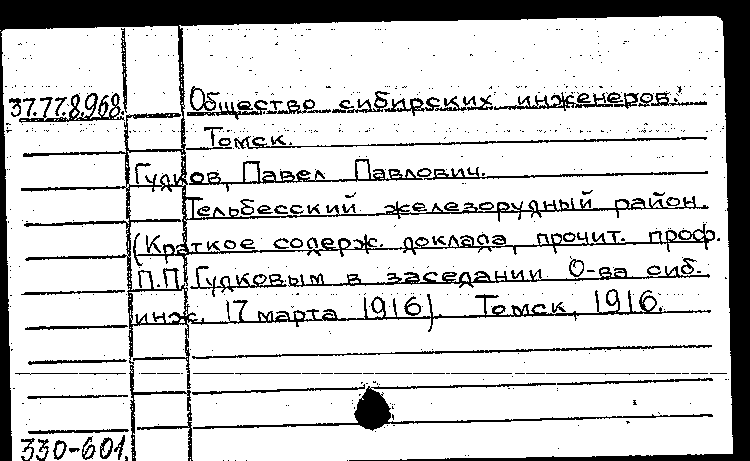 37.77.8.968. Общество сибирских инженеров.
Томск.
Гудков, Павел Павлович.
Тельбесский железорудный район.
(Краткое содерж. доклада, прочит. проф.
П.П. Гудковым в заседании О-ва сиб.
инж. 17 марта 1916). Томск, 1916.
330-601.